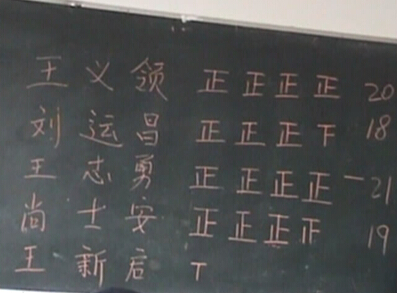 王义领 正正正正 20
刘运昌 正正正下 18
王志勇 正正正正一 21
尚士安 正正正正 19
王新启 丅